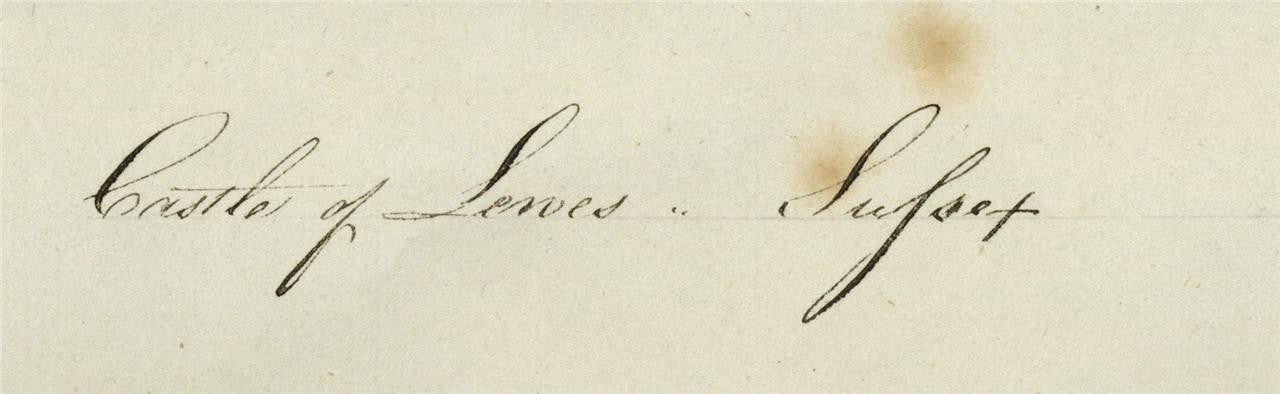 Castle of Lewes .. Suſsex